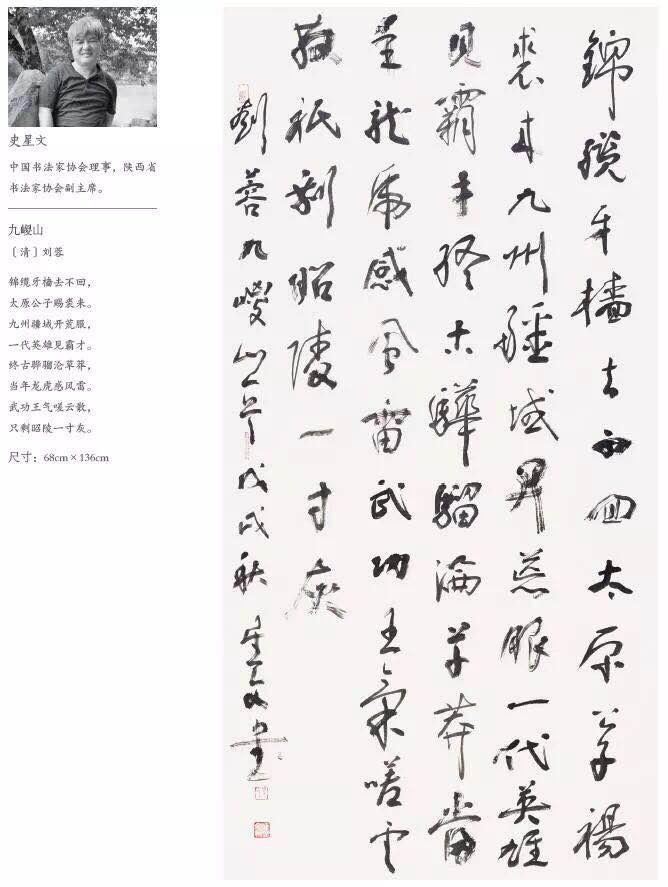 史星文
中国书法家协会理事，陕西省
书法家协会副主席。
九嵕山
〔清〕刘蓉
锦缆牙樯去不回，
太原公子赐裘来。
九州疆域开荒服，
一代英雄见霸才。
终古骅骝沦草莽，
当年龙虎感风雷。
武功王气嗟云散，
只剩昭陵一寸灰。
尺寸：68cm×136cm
錦纜牙檣去不回太原公子裼
裘来九州疆域開荒服一代英雄
見霸才終古驊騮淪草莽當
年龍虎感風雷武功王氣嗟云
散祇剩昭陵一寸灰
劉蓉九嵕山戊戌秋星文書